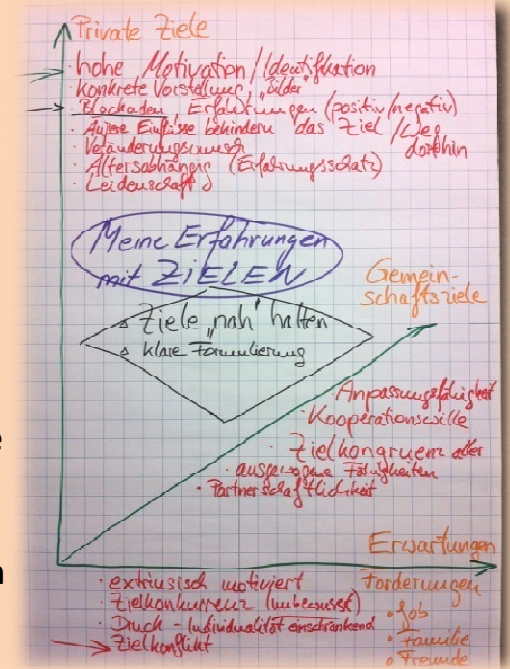 Private Ziele
· hohe Motivation / Identifikation
· konkrete Vorstellung, "Bilder"
· Blockaden Erfahrungen (positiv/negativ)
· Äußere Einflüsse behindern das Ziel / Weg
dorthin
· Veränderungswunsch
· Altersabhängig (Erfahrungsschatz)
· Leidenschaft
Meine Erfahrungen
mit ZIELEN
Ziele "nah" halten
klare Formulierung
Gemein-
schaftsziele
· Anpassungsfähigkeit
· Kooperationswille
· Zielkongruenz aller
· ausgewogene Fähigkeiten
· Partnerschaftlichkeit
Erwartungen
Forderungen
· Job
· Familie
· Freunde
· extrinsisch motiviert
· Zielkonkurrenz (unbewusst)
· Druck - Individualität einschränkend
Zielkonflikt